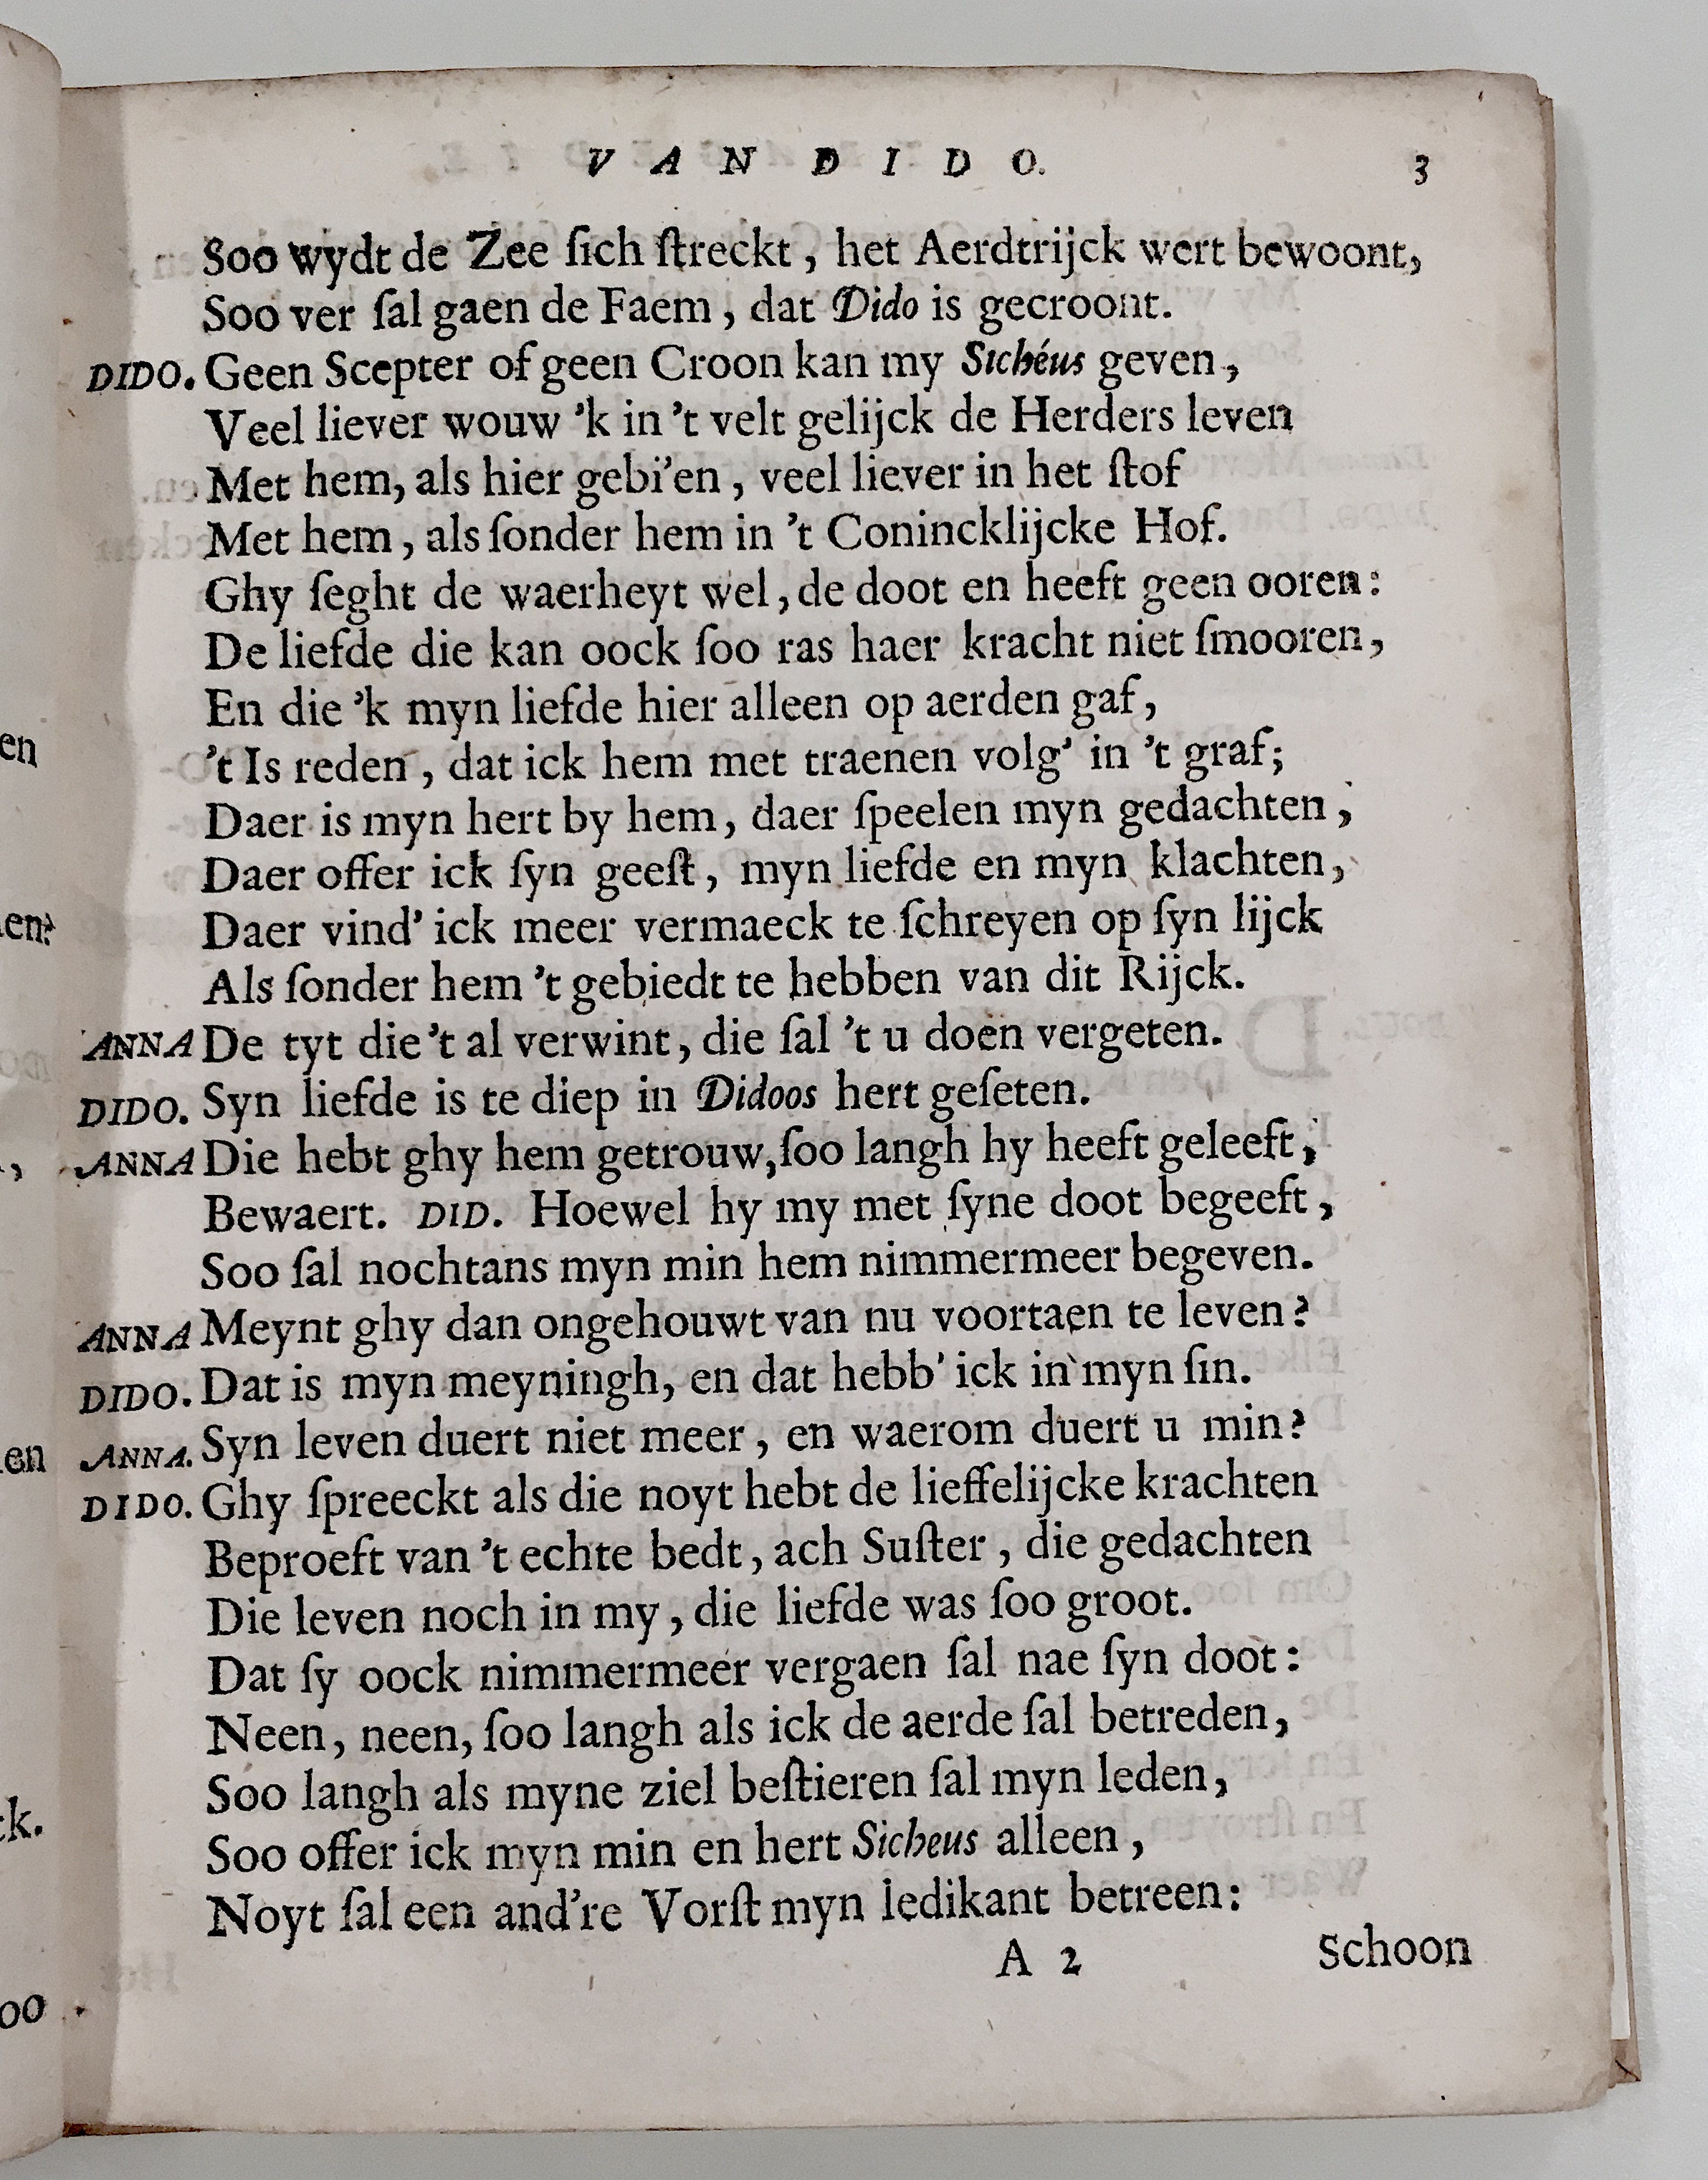 VAN DIDO. 3
Soo wydt de Zee ſich ſtreckt, het Aerdtrijck wert bewoont,
Soo ver ſal gaen de Faem, dat Dido is gecroont.
DIDO. Geen Scepter of geen Croon kan my Sichéus geven,
Veel liever wouw 'k in 't velt gelijck de Herders leven
Met hem, als hier gebi'en, veel liever in het ſtof
Met hem, als ſonder hem in 't Conincklijcke Hof.
Ghy ſeght de waerheyt wel, de doot en heeft geen ooren:
De liefde die kan oock ſoo ras haer kracht niet ſmooren,
En die 'k myn liefde hier alleen op aerden gaf,
't Is reden, dat ick hem met traenen volg' in 't graf;
Daer is myn hert by hem, daer ſpeelen myn gedachten,
Daer offer ick ſyn geeſt, myn liefde en myn klachten,
Daer vind' ick meer vermaeck te ſchreyen op ſyn lijck
Als ſonder hem 't gebiedt te hebben van dit Rijck.
ANNA De tyt die 't al verwint, die ſal 't u doen vergeten.
DIDO. Syn liefde is te diep in Didoos hert geſeten.
ANNA Die hebt ghy hem getrouw, ſoo langh hy heeft geleeft,
Bewaert. DID. Hoewel hy my met ſyne doot begeeft,
Soo ſal nochtans myn min hem nimmermeer begeven.
ANNA Meynt ghy dan ongehouwt van nu voortaen te leven?
DIDO. Dat is myn meyningh, en dat hebb' ick in myn ſin.
ANNA. Syn leven duert niet meer, en waerom duert u min?
DIDO. Ghy ſpreeckt als die noyt hebt de lieffelijcke krachten
Beproeft van 't echte bedt, ach Suſter, die gedachten
Die leven noch in my, die liefde was ſoo groot.
Dat ſy oock nimmermeer vergaen ſal nae ſyn doot:
Neen, neen, ſoo langh als ick de aerde ſal betreden,
Soo langh als myne ziel beſtieren ſal myn leden,
Soo offer ick myn min en hert Sicheus alleen,
Noyt ſal een and're Vorſt myn ledikant betreen:
A 2 Schoon